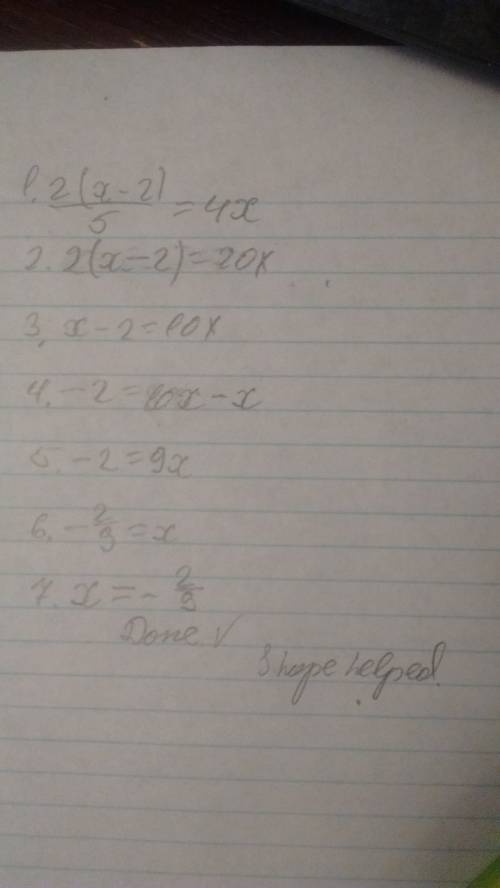 1. 2(x-2)/5 = 4x
2. 2(x-2)=20x
3. x-2=10x
4. -2=10x-x
5. -2=9x
6. -2/9=x
7. x=-2/9
Done √
I hope helped.